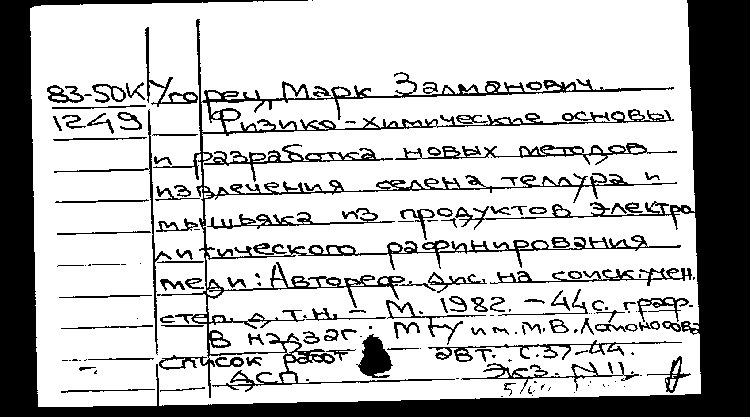 83-50К Угорец, Марк Залманович.
1249 Физико-химические основы
и разработка новых методов
извлечения селена, теллура и
мышьяка из продуктов электро
литического рафинирования
меди: Автореф. дис. на соиск. учен.
степ. д.т.н. - М. 1982. - 44 с, граф.
В надзаг.: МГУ им. М.В. Ломоносова
Список работ авт. с. 37-44.
ДСП. Экз. N 11.